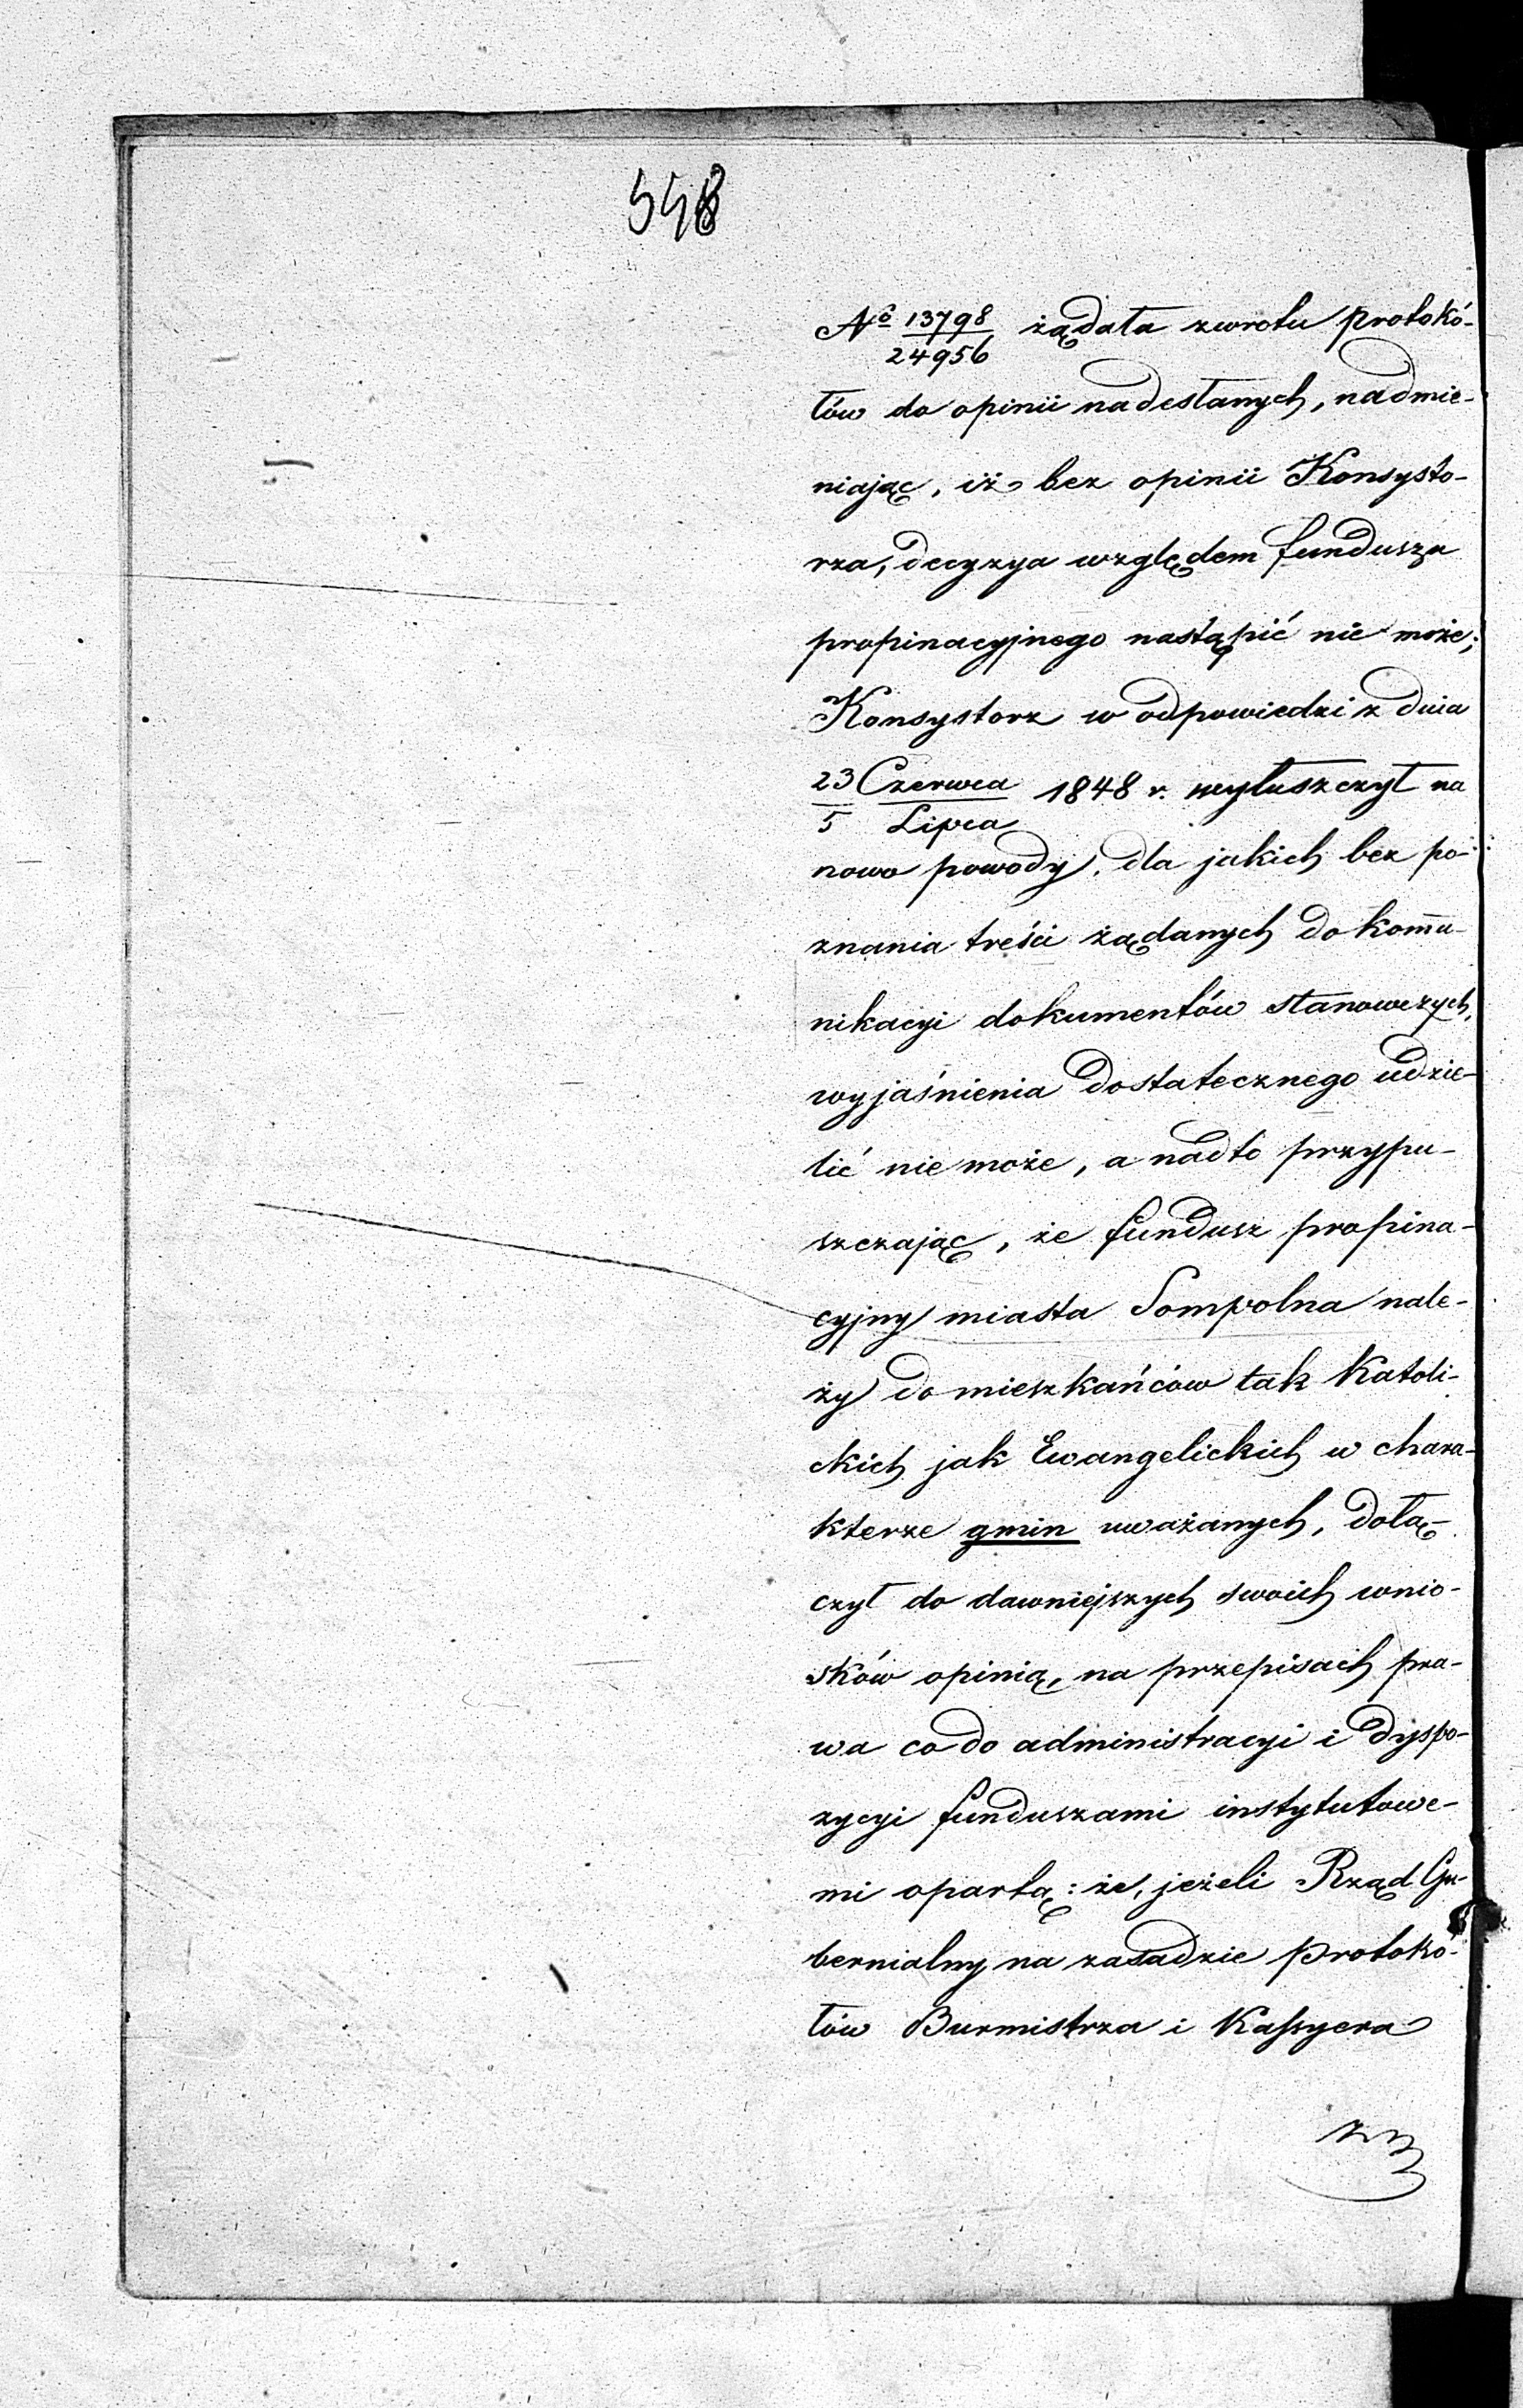 548
No 13798/24956 żądała zwrotu protokó-
łów do opinii nadesłanych, nadmie-
niając, iż bez opinii Konsysto-
rza, decyzya względem funduszu
propinacyjnego nastąpić nie może;
Konsystorz w odpowiedzi z dnia
23 Czerwca/5 Lipca 1848 r. wyłuszczył na
nowo powody, dla jakich bez po-
znania treści żądanych do kom̄u-
nikacyi dokumentów stanowczych,
wyjaśnienia dostatecznego udzie-
lić nie może, a nadto przypu-
szczając, że fundusz propina-
cyjny miasta Sompolna nale-
ży do mieszkańców tak Katoli-
ckich jak Ewangelickich w chara-
kterze gmin uważanych, dołą-
czył do dawniejszych swoich wnio-
sków opinią, na przepisach pra-
wa co do administracyi i dyspo-
zycyi funduszami instytutowe-
mi opartą: że, jeżeli Rząd Gu-
bernialny na zasadzie protokó-
łów Burmistrza i Kassyera